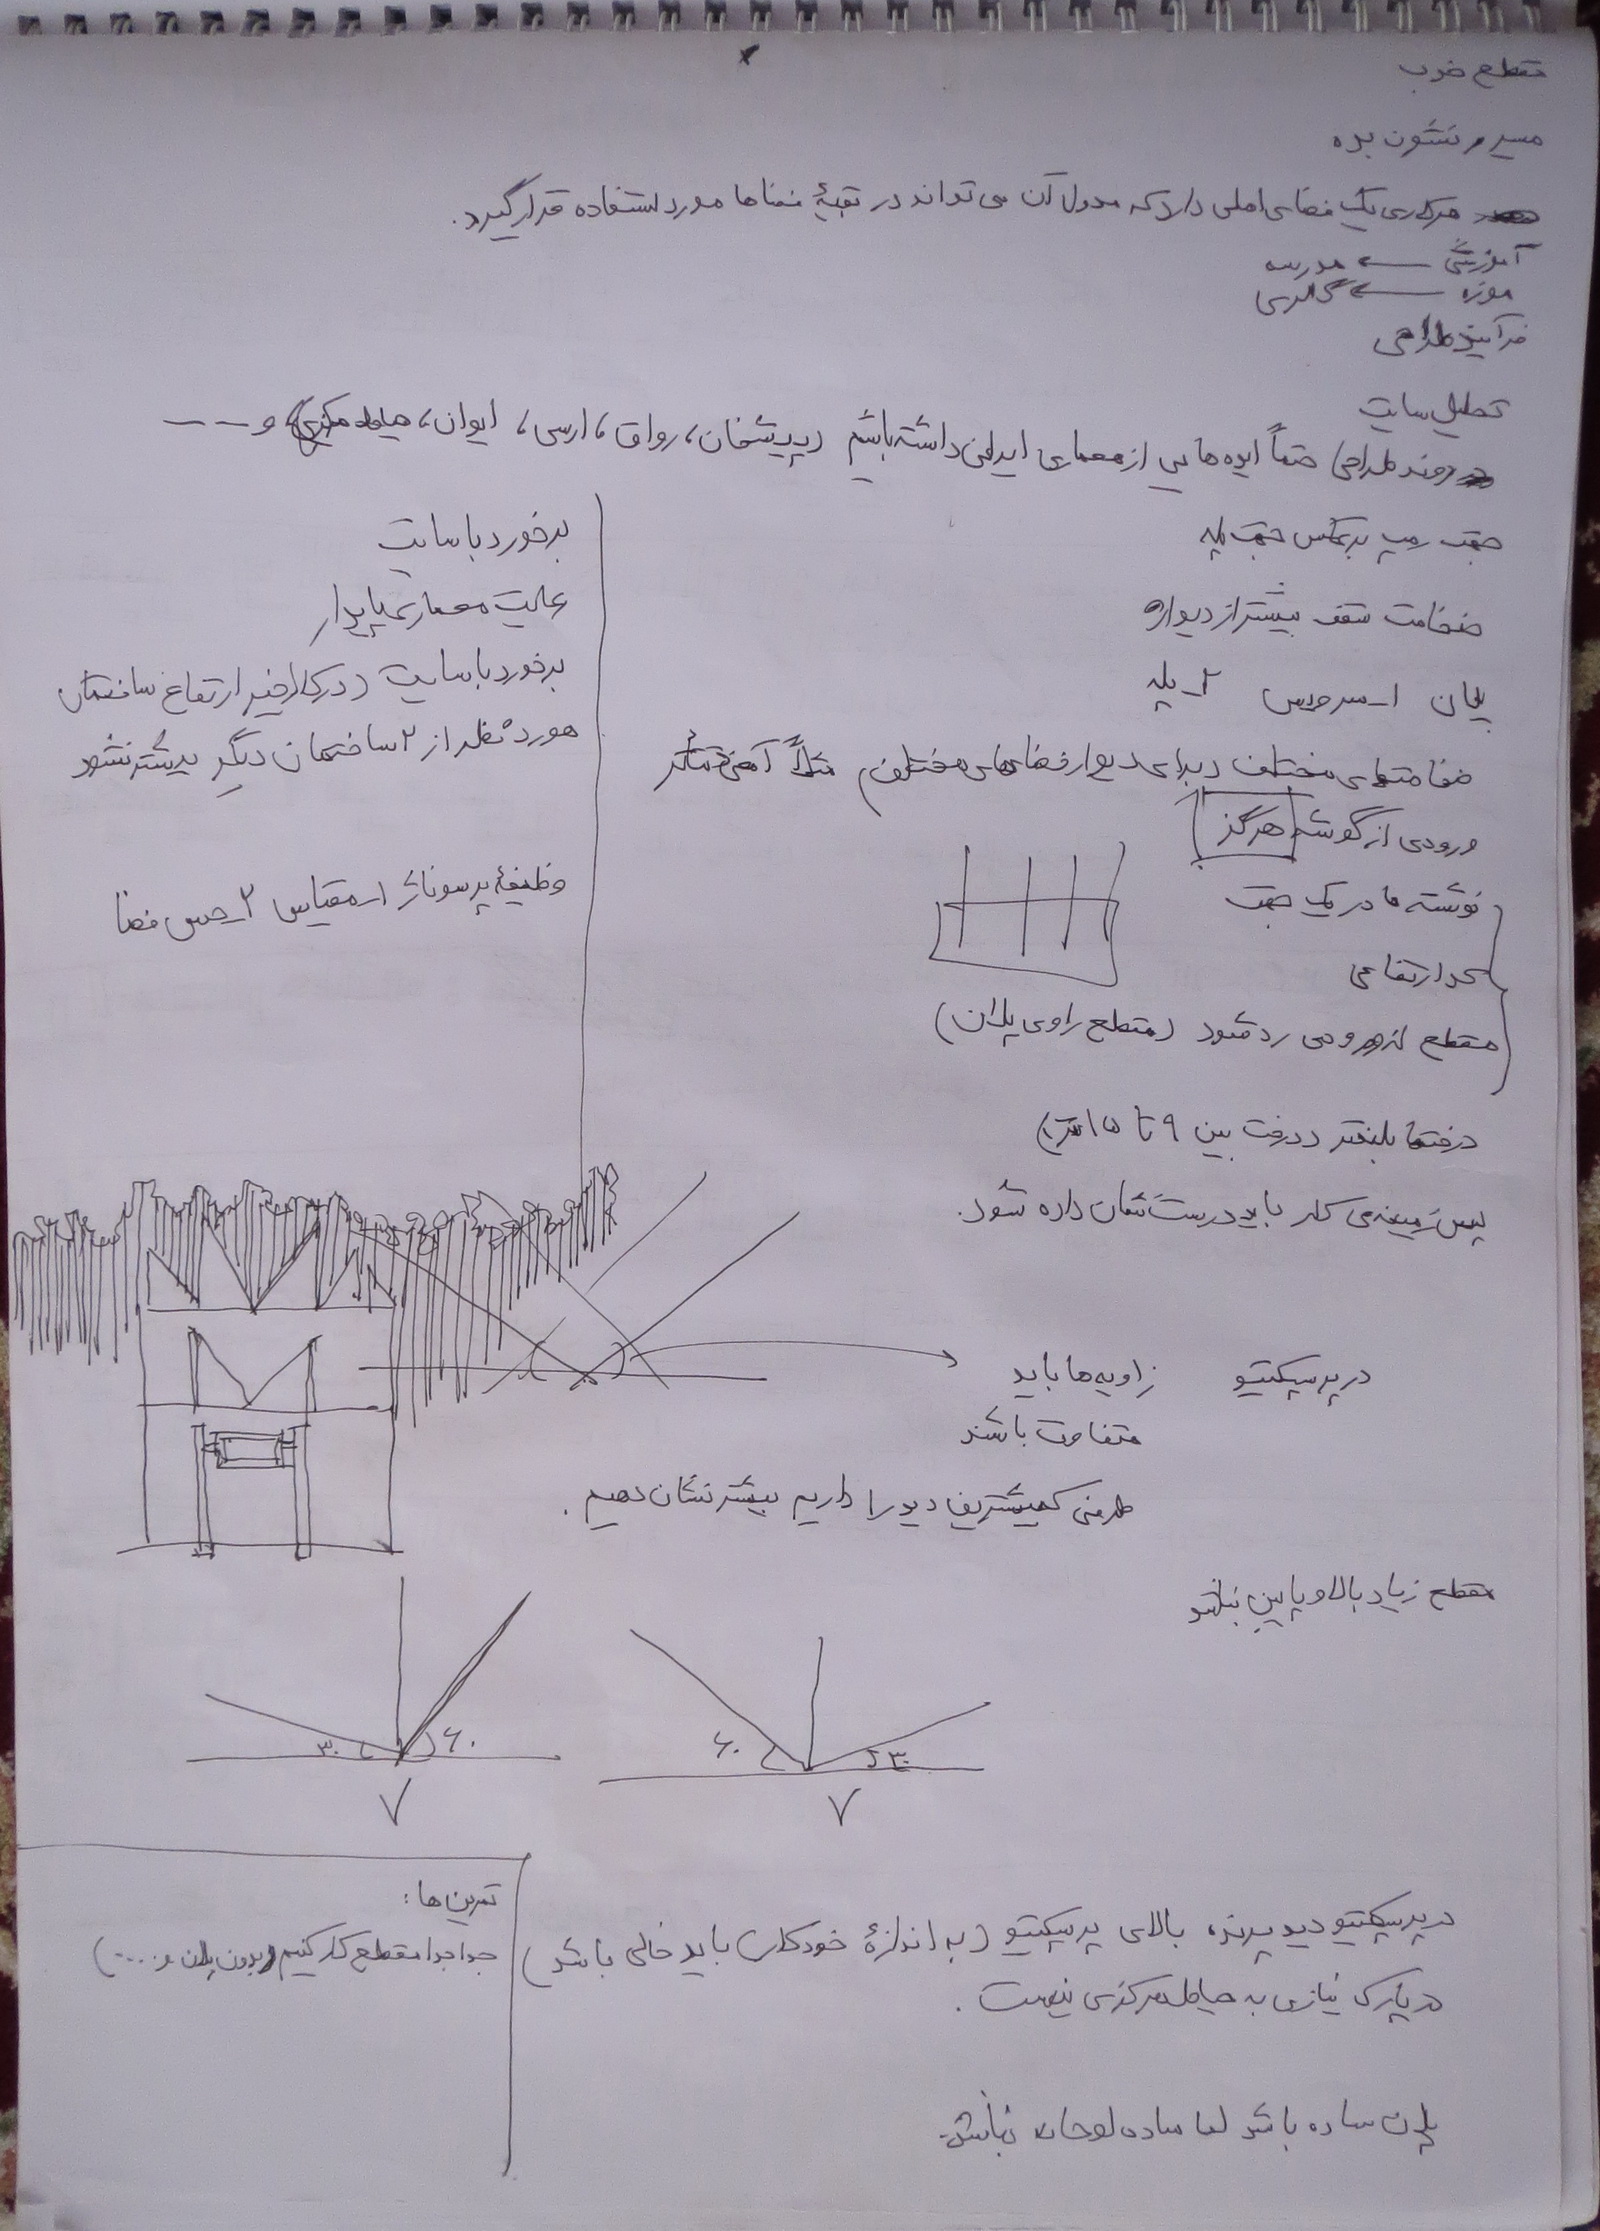 مقطع خوب
مسیر و نشون بده
هرکاری یک فضای اصلی دارد که مدول آن می تواند در بقیهٔ فضاها مورد استفاده قرار گیرد.
آموزشی ← مدرسه
موزه ← گالری
فرآیند طراحی
تحلیل سایت
در روند طراحی حتماً ایده هایی از معماری ایرانی داشته باشیم (پیشخان، رواق، ارسی، ایوان، حیاط مرکزی و ---
جهت رمپ برعکس جهت پله
ضخامت سقف بیشتر از دیواره
پلان ۱ـ سرویس ۲ـ پله
ضخامتهای مختلف برای دیوار فضاهای مختلف مثلاً آمفی تئاتر
ورودی از گوشه هرگز
نوشته ها در یک جهت
کد ارتفاعی
مقطع از ورودی رد شود (مقطع راوی پلان)
درختها بلندتر (درخت بین ۹ تا ۱۵ متر)
پس زمینه ی کار باید درست نشان داده شود.
برخورد با سایت
رعایت معماری پایدار
برخورد با سایت (در کار اخیر ارتفاع ساختمان
مورد نظر از ۲ ساختمان دیگر بیشتر نشود
وظیفهٔ پرسوناژ ۱ـ مقیاس ۲ـ حس فضا
در پرسپکتیو زاویه ها باید
متفاوت باشند
طرفی که بیشترین دید را داریم بیشتر نشان دهیم.
مقطع زیاد بالا و پایین نباشد
۳۰ ۶۰
۶۰ ۳۰
در پرسپکتیو دید پرنده، بالای پرسپکتیو (به اندازهٔ خودکار) باید خالی باشد)
در پارک نیازی به حیاط مرکزی نیست.
پلان ساده باشد اما ساده لوحانه نباشد.
تمرین ها:
جداجدا مقطع کار کنیم (بدون پلان و ....)